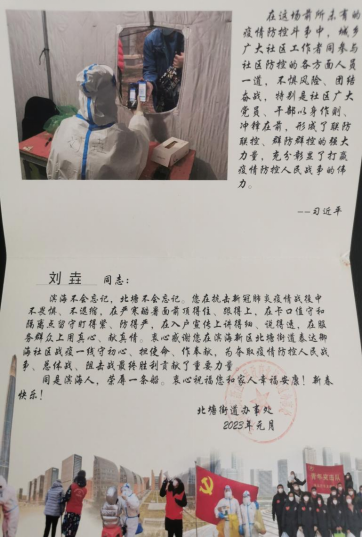 在这场前所未有的
疫情防控斗争中，城乡
广大社区工作者同参与
社区防控的各方面人员
一道，不惧风险、团结
奋战，特别是社区广大
党员、干部以身作则、
冲锋在前，形成了联防
联控、群防群控的强大
力量，充分彰显了打赢
疫情防控人民战争的伟
力。
——习近平
刘垚 同志：
滨海不会忘记，北塘不会忘记。您在抗击新冠肺炎疫情战役中
不畏惧、不退缩，在严寒酷暑面前顶得住、狠得上，在卡口值守和
隔离点留守盯得紧、防得严，在入户宣传上讲得细、说得透，在服
务群众上用真心、献真情。衷心感谢您在滨海新区北塘街道泰达御
海社区战疫一线守初心、担使命、作奉献，为夺取疫情防控人民战
争、总体战、阻击战最终胜利贡献了重要力量
同是滨海人，荣辱一条船。衷心祝福您和家人幸福安康！新春
快乐！
北塘街道办事处
2023年元月